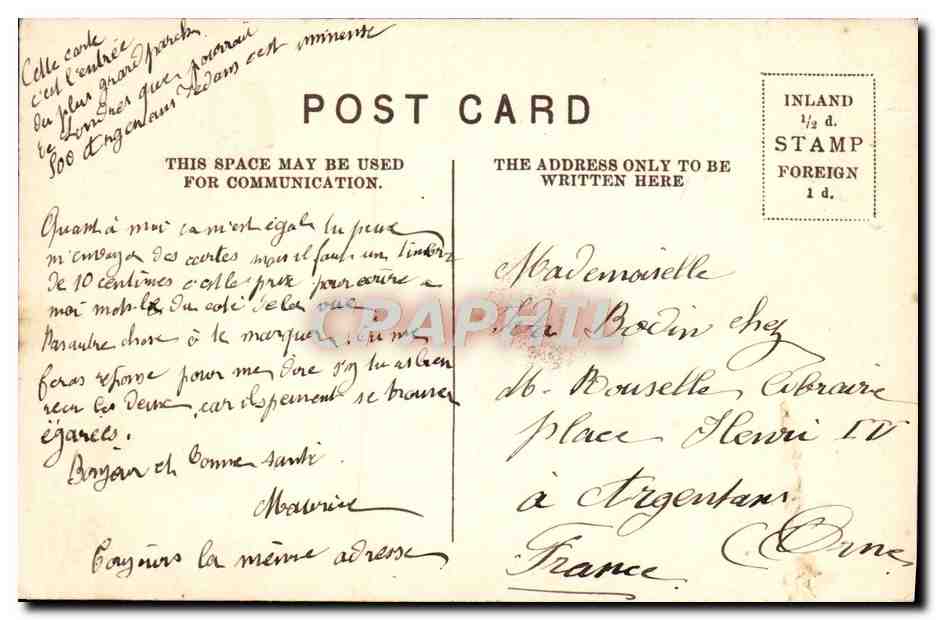 Cette carte
c'est l'entrée
du plus grand parck
de Londres que pourrait
500 Argentans dedans c'est iminense
POST CARD
INLAND
1/2 d.
STAMP
FOREIGN
1 d.
THIS SPACE MAY BE USED
FOR COMMUNICATION.
THE ADDRESS ONLY TO BE
WRITTEN HERE
Quant à moi ca m'est égale tu peux
m'envoyer des cartes mais il faut un timbre
de 10 centimes c'est le prix pour écrire a
moi mets-le du coté de la vue
Pas autre chose à te marquer. tu me
feras réponse pour me dire si tu as bien
recu les deux, car ils peuvent se trouver
égarées.
Bonjour et bonne santé.
Maurice
Toujours la même adresse
Mademoiselle
Ida Bodin chez
M. Rouselle libraire
place Henri IV
à Argentans
(Orne
France
CPAPHIL